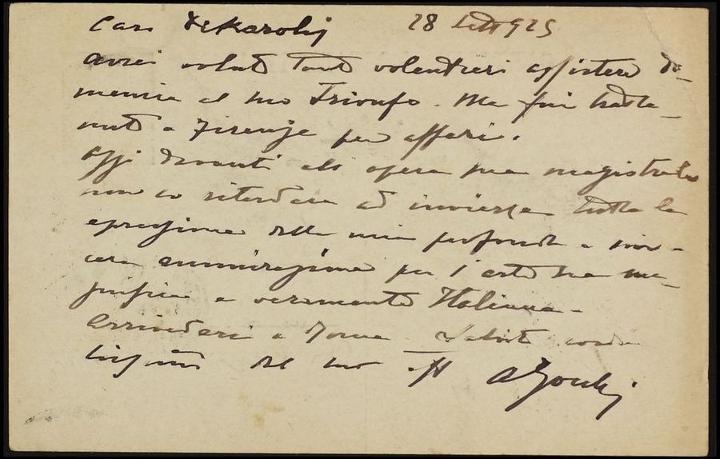 Caro De Karolij 28 Sett 925
avrei voluto tanto volentieri assistere do-
menica al tuo Trionfo. Ma fui tratte-
nuto a Firenze per affari.
Oggi davanti all opera tua magistrale
non so ritardare ad inviarti tutta la
espressione della mia profonda e sin-
cera ammirazione per l'arte tua ma-
gnifica e veramente Italiana.
Arrivederci a Roma. Saluti cordia
lissimi del tuo aff